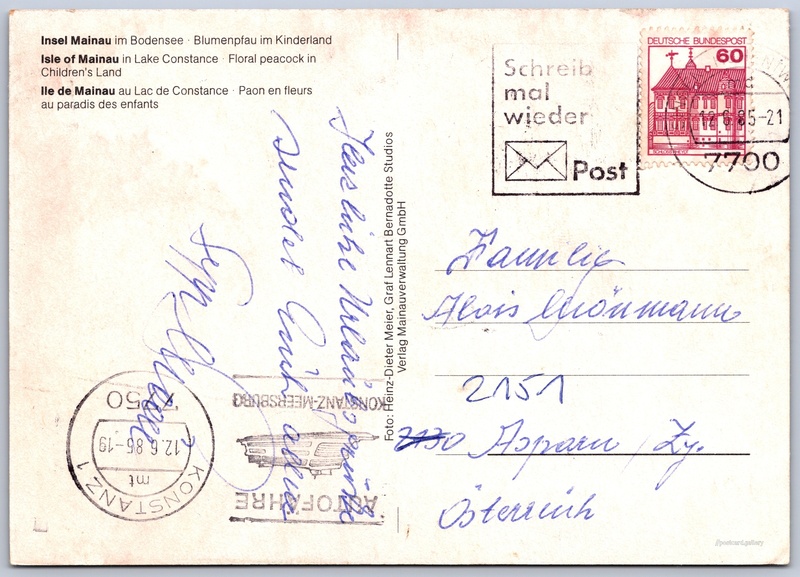 Insel Mainau im Bodensee · Blumenpfau im Kinderland
Isle of Mainau in Lake Constance · Floral peacock in
Children's Land
Ile de Mainau au Lac de Constance · Paon en fleurs
au paradis des enfants
Schreib
mal
wieder
Post
DEUTSCHE BUNDESPOST
60
12.6.85-21
7700
Herzliche Urlaubsgrüße
sendet Euch allen
Sepp
Foto: Heinz-Dieter Meier, Graf Lennart Bernadotte Studios
Verlag Mainauverwaltung GmbH
Familie
Alois
2151
2130 Asparn / Zy.
Österreich
7750
12.6.85-19
mt
KONSTANZ 1
KONSTANZ-MEERSBURG
AUTOFÄHRE